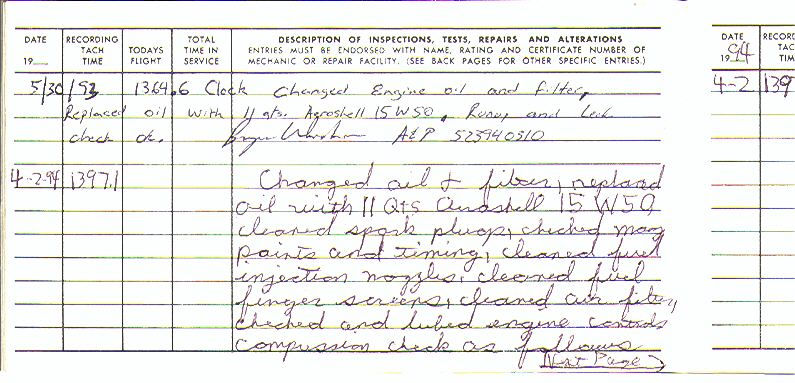 DATE
19__
RECORDING TACH TIME
TODAYS FLIGHT
TOTAL TIME IN SERVICE
DESCRIPTION OF INSPECTIONS, TESTS, REPAIRS AND ALTERATIONS
ENTRIES MUST BE ENDORSED WITH NAME, RATING AND CERTIFICATE NUMBER OF
MECHANIC OR REPAIR FACILITY. (SEE BACK PAGES FOR OTHER SPECIFIC ENTRIES.)
5/30/93 1364.6 Clock Changed Engine oil and filter,
Replaced oil with 11 qts. Aeroshell 15W50, Runup and Leak
check ok. A&P 525940510
4-2-94 1397.1 Changed oil & filter, replaced
oil with 11 Qts Aeroshell 15W50
cleaned spark plugs, checked mag
points and timing, cleaned fuel
injection nozzles, cleaned fuel
finger screens, cleaned air filter,
checked and lubed engine controls
compression check as follows
Next Page
DATE
1994
RECORD
TACH
TIME
4-2 139